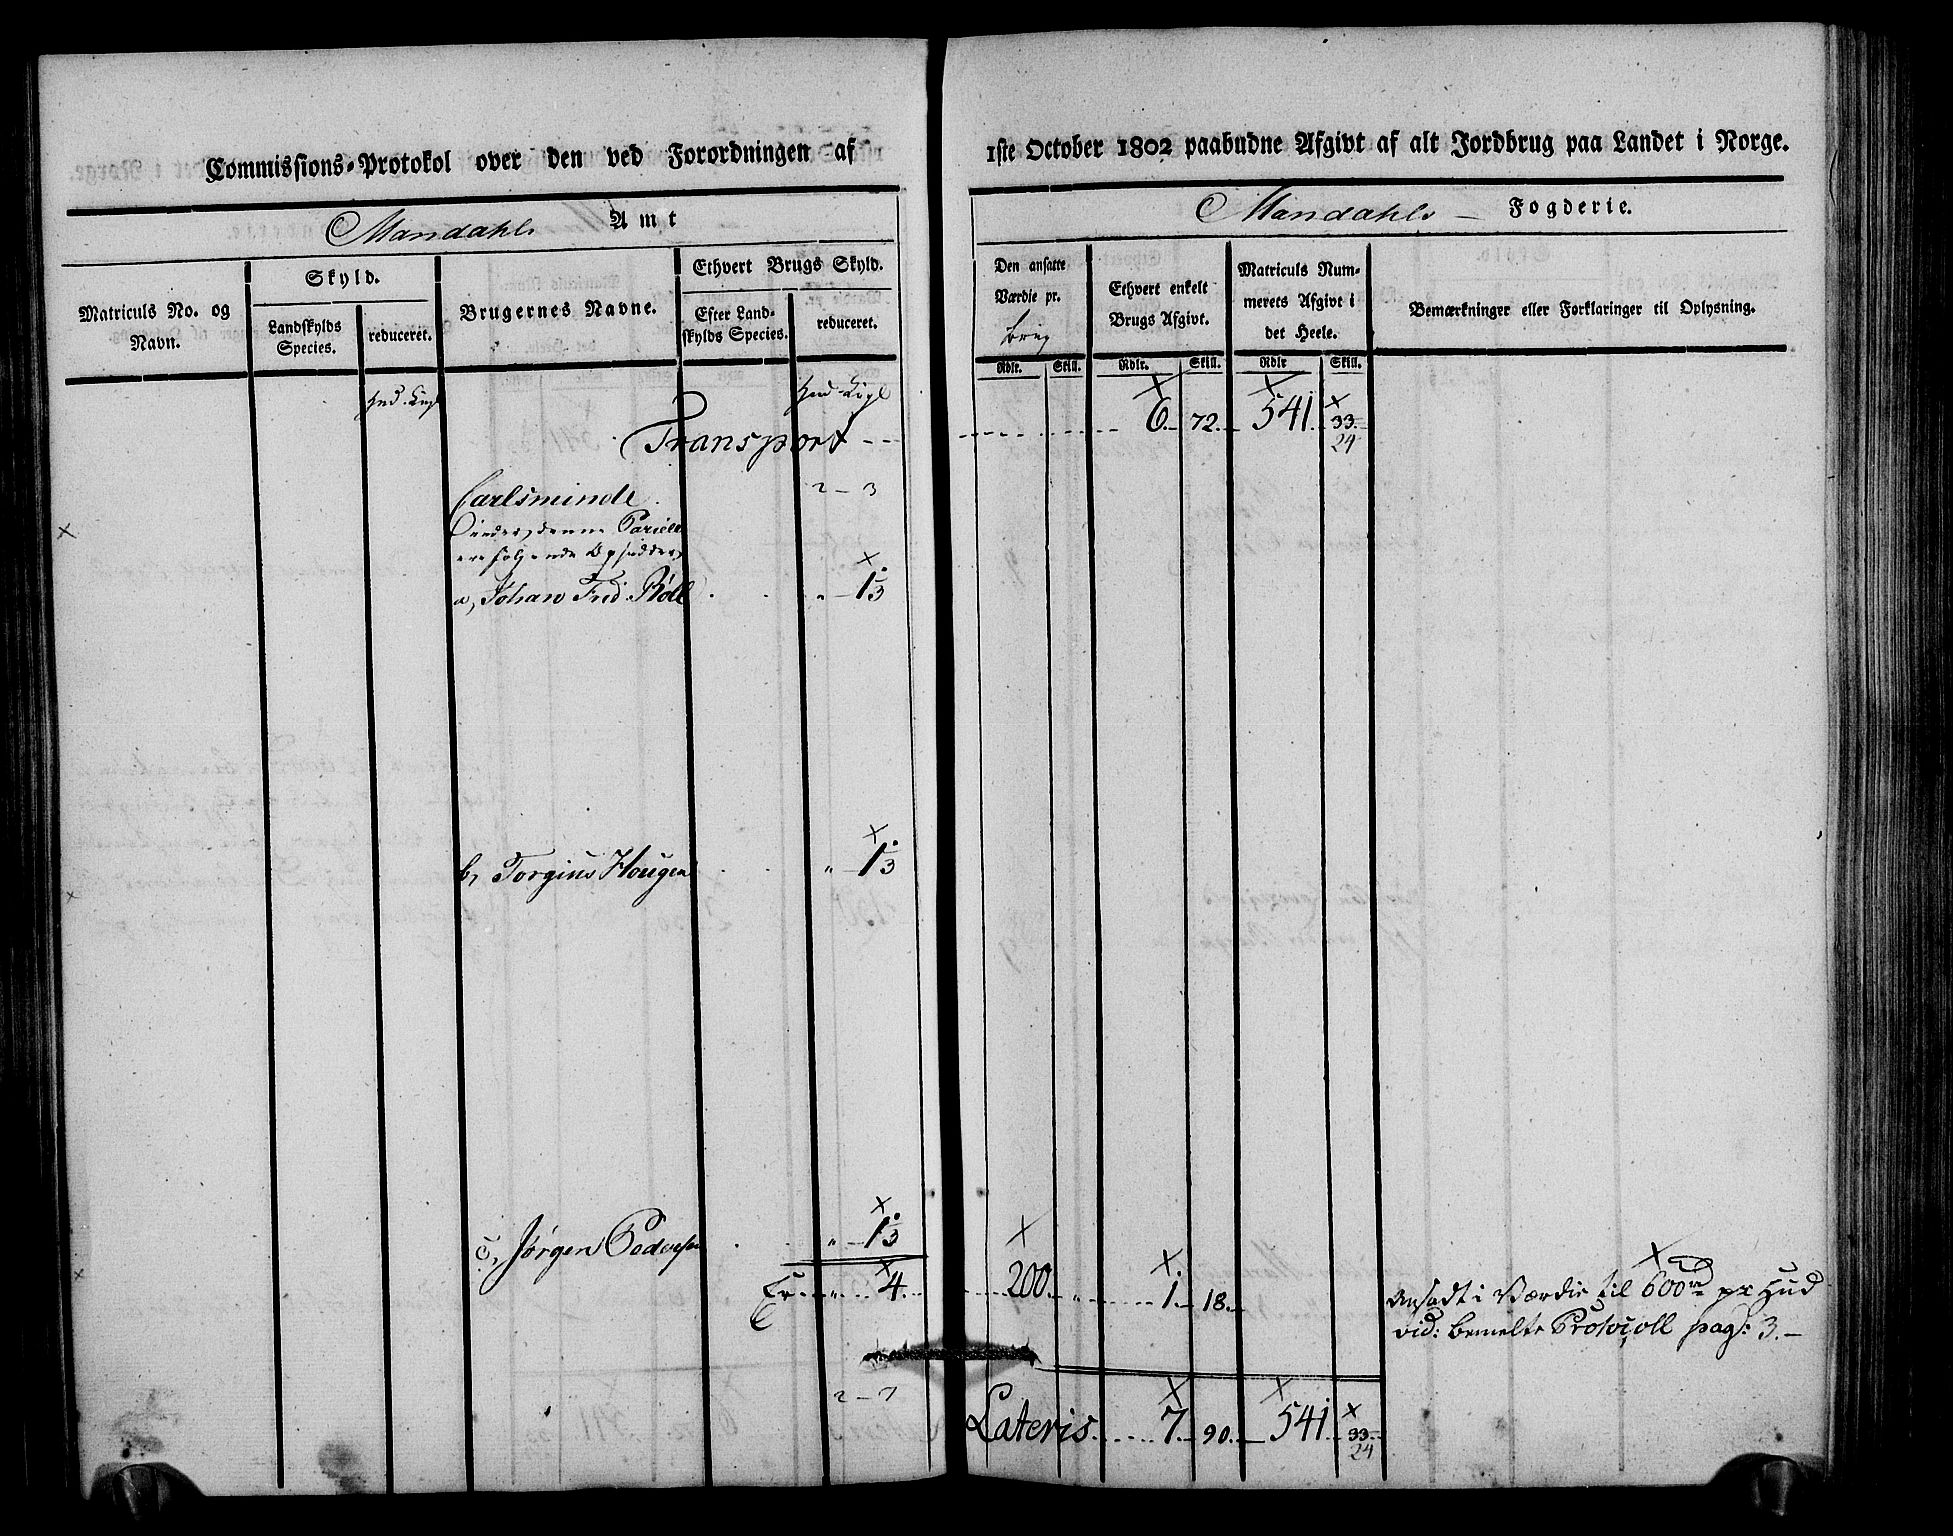 Commissions-Protokol over den ved Forordningen af
1ste October 1802 paabudne Afgivt af alt Jordbrug paa Landet i Norge.
Mandahls Amt
Mandahls – Fogderie.
Matriculs No. og Navn.
Skyld.
Landskylds Species.
reduceret.
Brugernes Navne.
Ethvert Brugs Skyld.
Efter Landskylds Species.
reduceret.
Den ansatte Værdie pr. brug
Rdlr. Skill.
Ethvert enkelt Brugs Afgivt.
Rdlr. Skill.
Matriculs Nummerets Afgivt i det Heele.
Rdlr Skill.
Bemærkninger eller Forklaringer til Oplysning.
Transport 6. 72. 541. 33. 24
Carlsminde 2 – 3
Under denne
ere følgende Opsiddere
a, Johan Frid. " 1 3
b, Torgius Hougen " 1 3
c, Jørgen Pedersen " 1 3
Er " 4. 200. " 1. 18.
Ansadt i Værdie til 600 rd pr Hud
vid: bemelte Protocoll pag: 3. –
2 – 7
Lateris 7. 90. 541. 33. 24